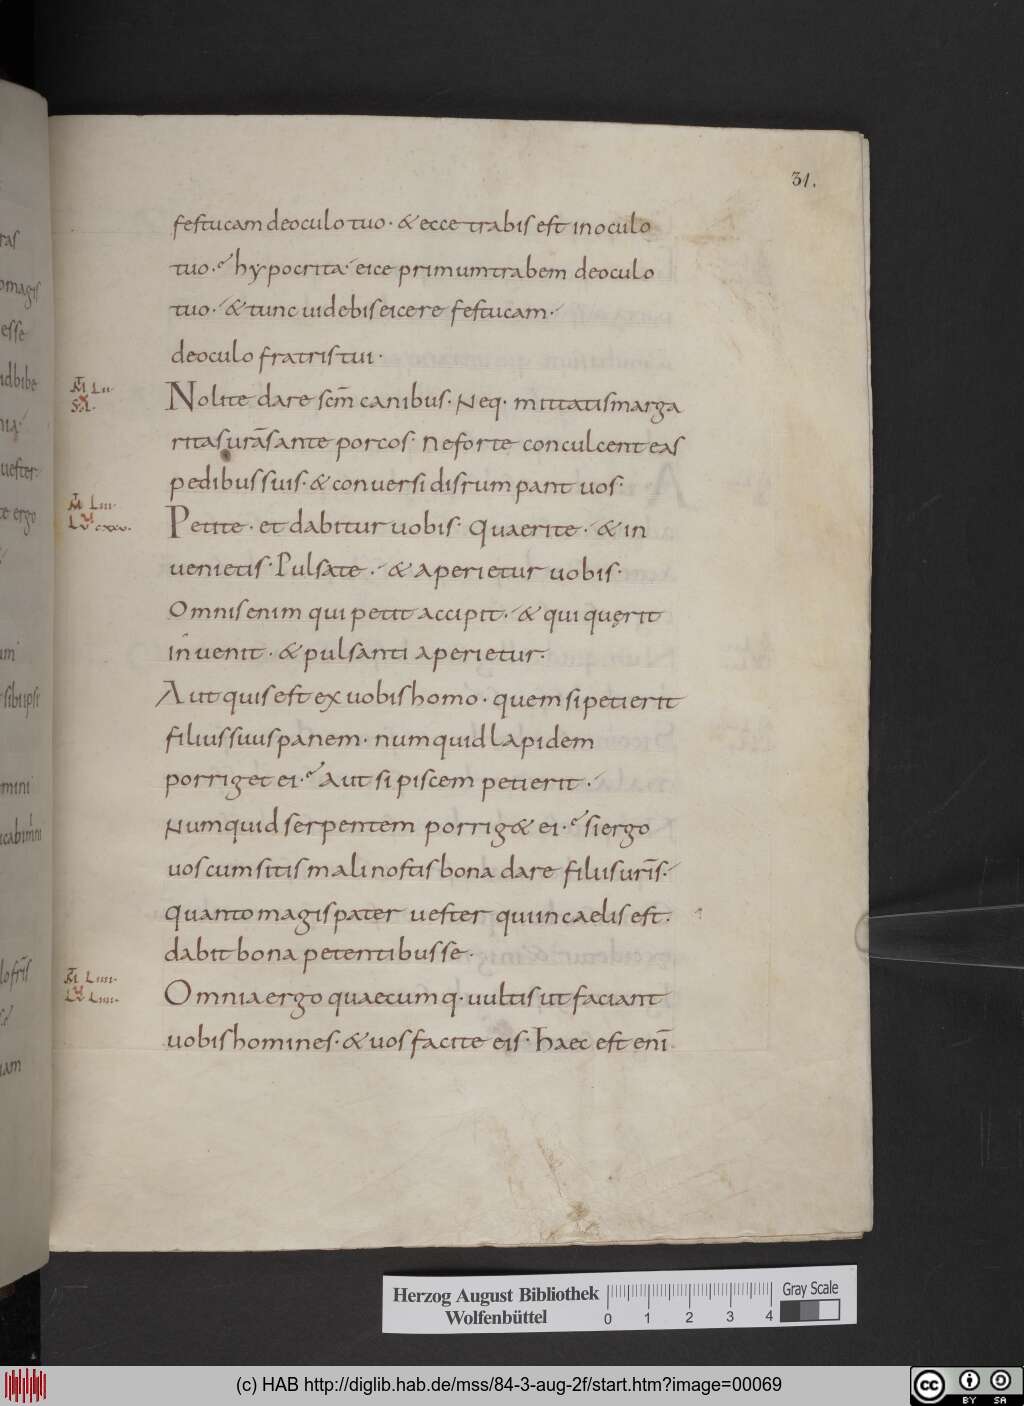 31.
festucam deoculo tuo· & ecce trabis est in oculo
tuo· hypocrita· eice primum trabem deoculo
tuo· & tunc uidebis eicere festucam·
deoculo fratris tui·
Nolite dare scm̄ canibus· Neq· mittatis marga
ritas urās ante porcos· Neforte conculcent eas
pedibus suis· & conuersi disrumpant uos·
Petite· et dabitur uobis· Quaerite· & in
uenietis· Pulsate· & aperietur uobis·
Omnis enim qui petit accipit· & qui quęrit
inuenit· & pulsanti aperietur·
Aut quis est ex uobis homo· quem si petierit
filius suus panem· numquid lapidem
porriget ei· Aut si piscem petierit·
Numquid serpentem porrig& ei· si ergo
uos cum sitis mali nostis bona dare filiis urīs·
quanto magis pater uester qui in caelis est·
dabit bona petentibus se·
Omnia ergo quaecumq· uultis ut faciant
uobis homines· & uos facite eis· haec est enī
M̄ Lii·
M̄ Liii·
Lu cxxu·
M̄ Liiii·
Lu Liiii·
ras
omagis
esse
idbibe
nia·
uester·
te ergo
um
sibi ipsi
mini
lo fr̄is
iam
Herzog August Bibliothek
Wolfenbüttel
0 1 2 3 4
Gray Scale
(c) HAB http://diglib.hab.de/mss/84-3-aug-2f/start.htm?image=00069
cc BY SA